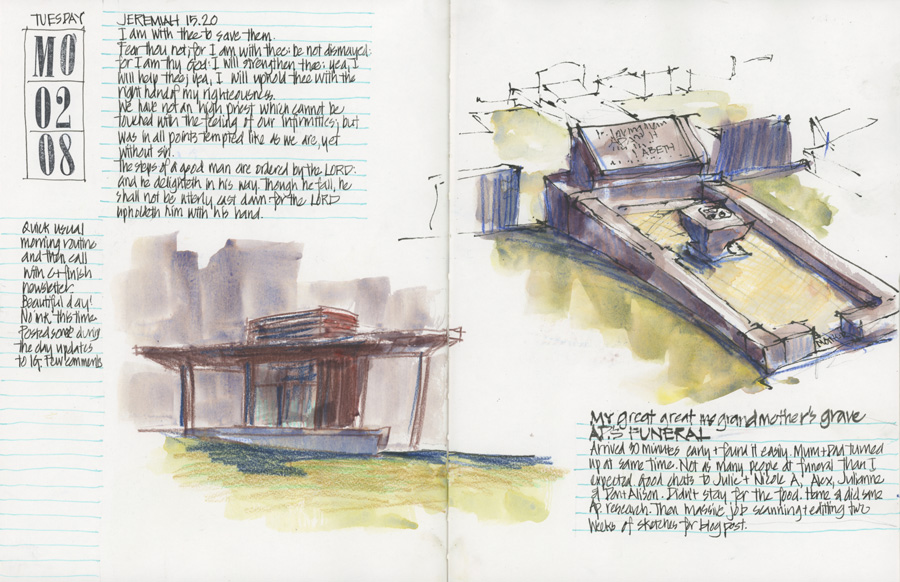 TUESDAY
MO
02
08
JEREMIAH 15.20
I am with thee to save them.
Fear thou not; for I am with thee: be not dismayed:
for I am thy God: I will strengthen thee; yea, I
will help thee; yea, I will uphold thee with the
right hand of my righteousness.
We have not an high priest which cannot be
touched with the feeling of our infirmities; but
was in all points tempted like as we are, yet
without sin.
The steps of a good man are ordered by the LORD:
and he delighteth in his way. Though he fall, he
shall not be utterly cast down: for the LORD
upholdeth him with his hand.
Quick usual
morning routine
and then call
with C + finish
newsletter.
Beautiful day!
No ink this time
Posted some during
the day updates
to IG. Few comments
ABETH
My great great grandmother's grave
AP.'S FUNERAL
Arrived 30 minutes early + found it easily. Mum + Dad turned
up at same time. Not as many people at funeral than I
expected. Good chats to Julie + Nicole A, Alex, Julianne
+ Alison. Didn't stay for the food. Home & did some
AP research. Then massive job scanning + editing two
weeks of sketches for blog post.